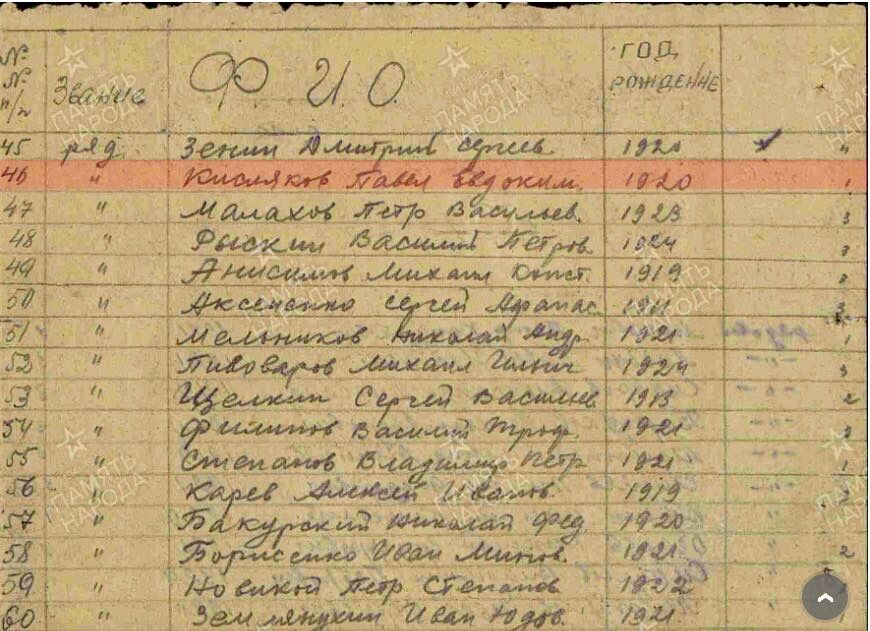 № № п/п Звание Ф И. О. ГОД РОЖДЕНИЕ
45 ряд. Зенин Дмитрий Сергеев. 1920 "
46 " Кисляков Павел Евдоким. 1920 1
47 " Малахов Петр Васильев. 1923 3
48 " Рыскин Василий Петров. 1924
49 " Анисимов Михаил Конст. 1919
50 " Аксененко Сергей Афанас. 1911 3
51 " Мельников Николай Андр. 1921 1
52 " Пивоваров Михаил Ильич 1924 3
53 " Щелкин Сергей Васильев. 1913 2
54 " Филипов Василий Троф. 1921 3
55 " Степанов Владимир Петр. 1921 1
56 " Карев Алексей Иванов. 1919
57 " Бакурский Николай Фед. 1920
58 " Борисенко Иван Минов. 1921 2
59 " Новикой Петр Степанов. 1922
60 " Землянухин Иван 1921 1
ПАМЯТЬ НАРОДА